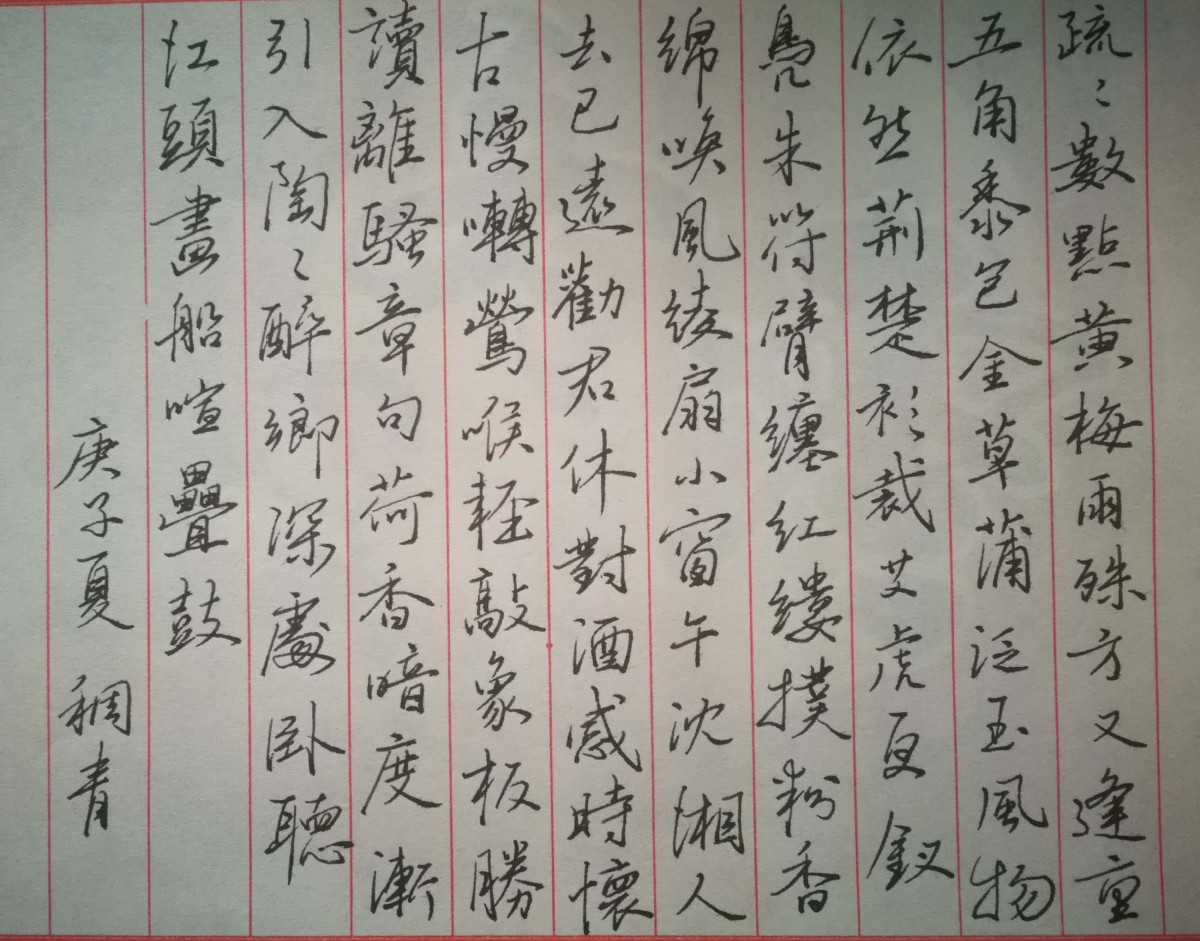 疏〻數點黃梅雨殊方又逢重
五角黍包金草蒲泛玉風物
依然荊楚衫裁艾虎更釵
鳧朱符臂纏紅縷撲粉香
綿喚風綾扇小窗午沈湘人
去已遠勸君休對酒感時懷
古慢囀鶯喉輕敲象板勝
讀離騷章句荷香暗度漸
引入陶〻醉鄉深處臥聽
江頭畫船喧疊鼓
庚子夏 稠青